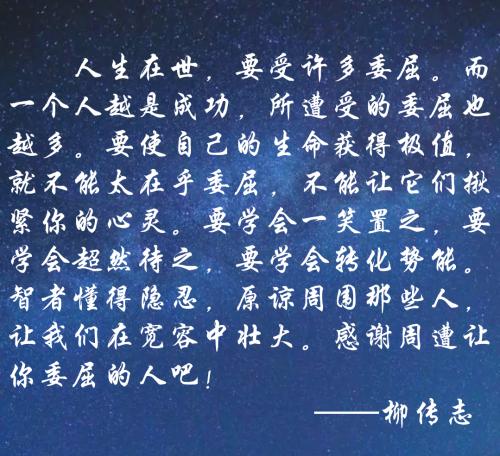 人生在世，要受许多委屈。而
一个人越是成功，所遭受的委屈也
越多。要使自己的生命获得极值，
就不能太在乎委屈，不能让它们揪
紧你的心灵。要学会一笑置之，要
学会超然待之，要学会转化势能。
智者懂得隐忍，原谅周围那些人，
让我们在宽容中壮大。感谢周遭让
你委屈的人吧！
——柳传志